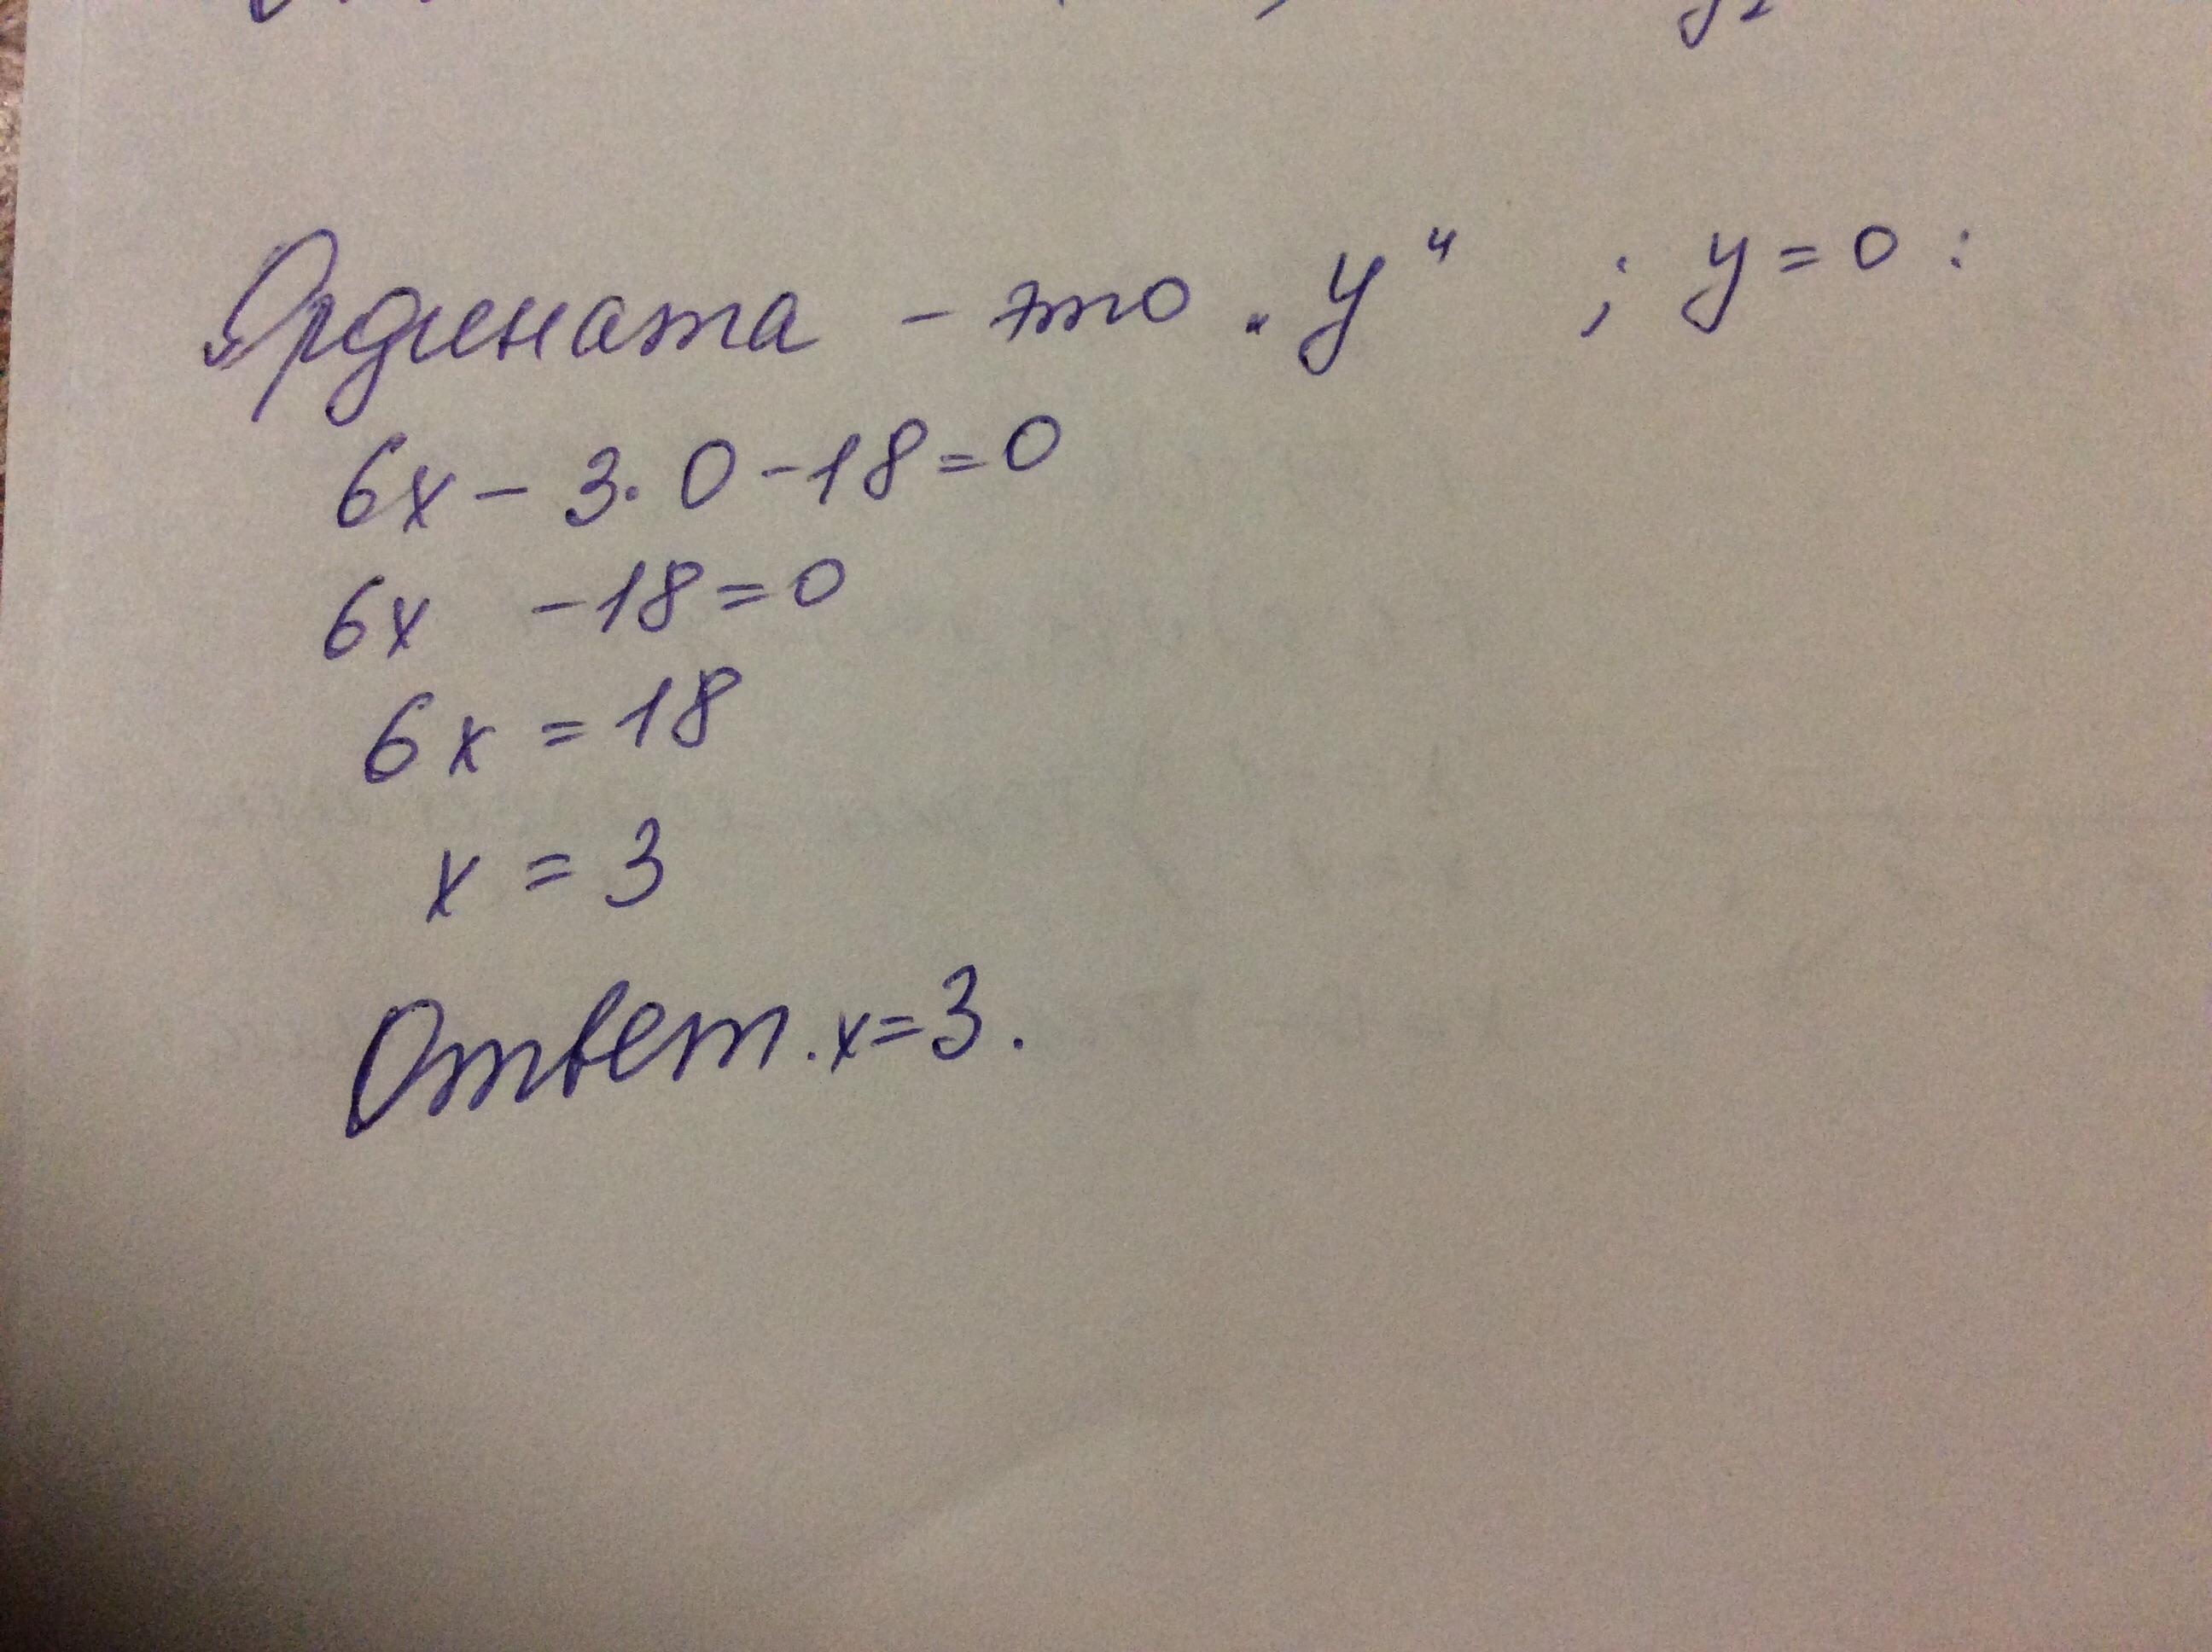 Ордината - это „y“ ; y=0:
6x - 3·0 - 18=0
6x -18=0
6x = 18
x = 3
Ответ. x=3.